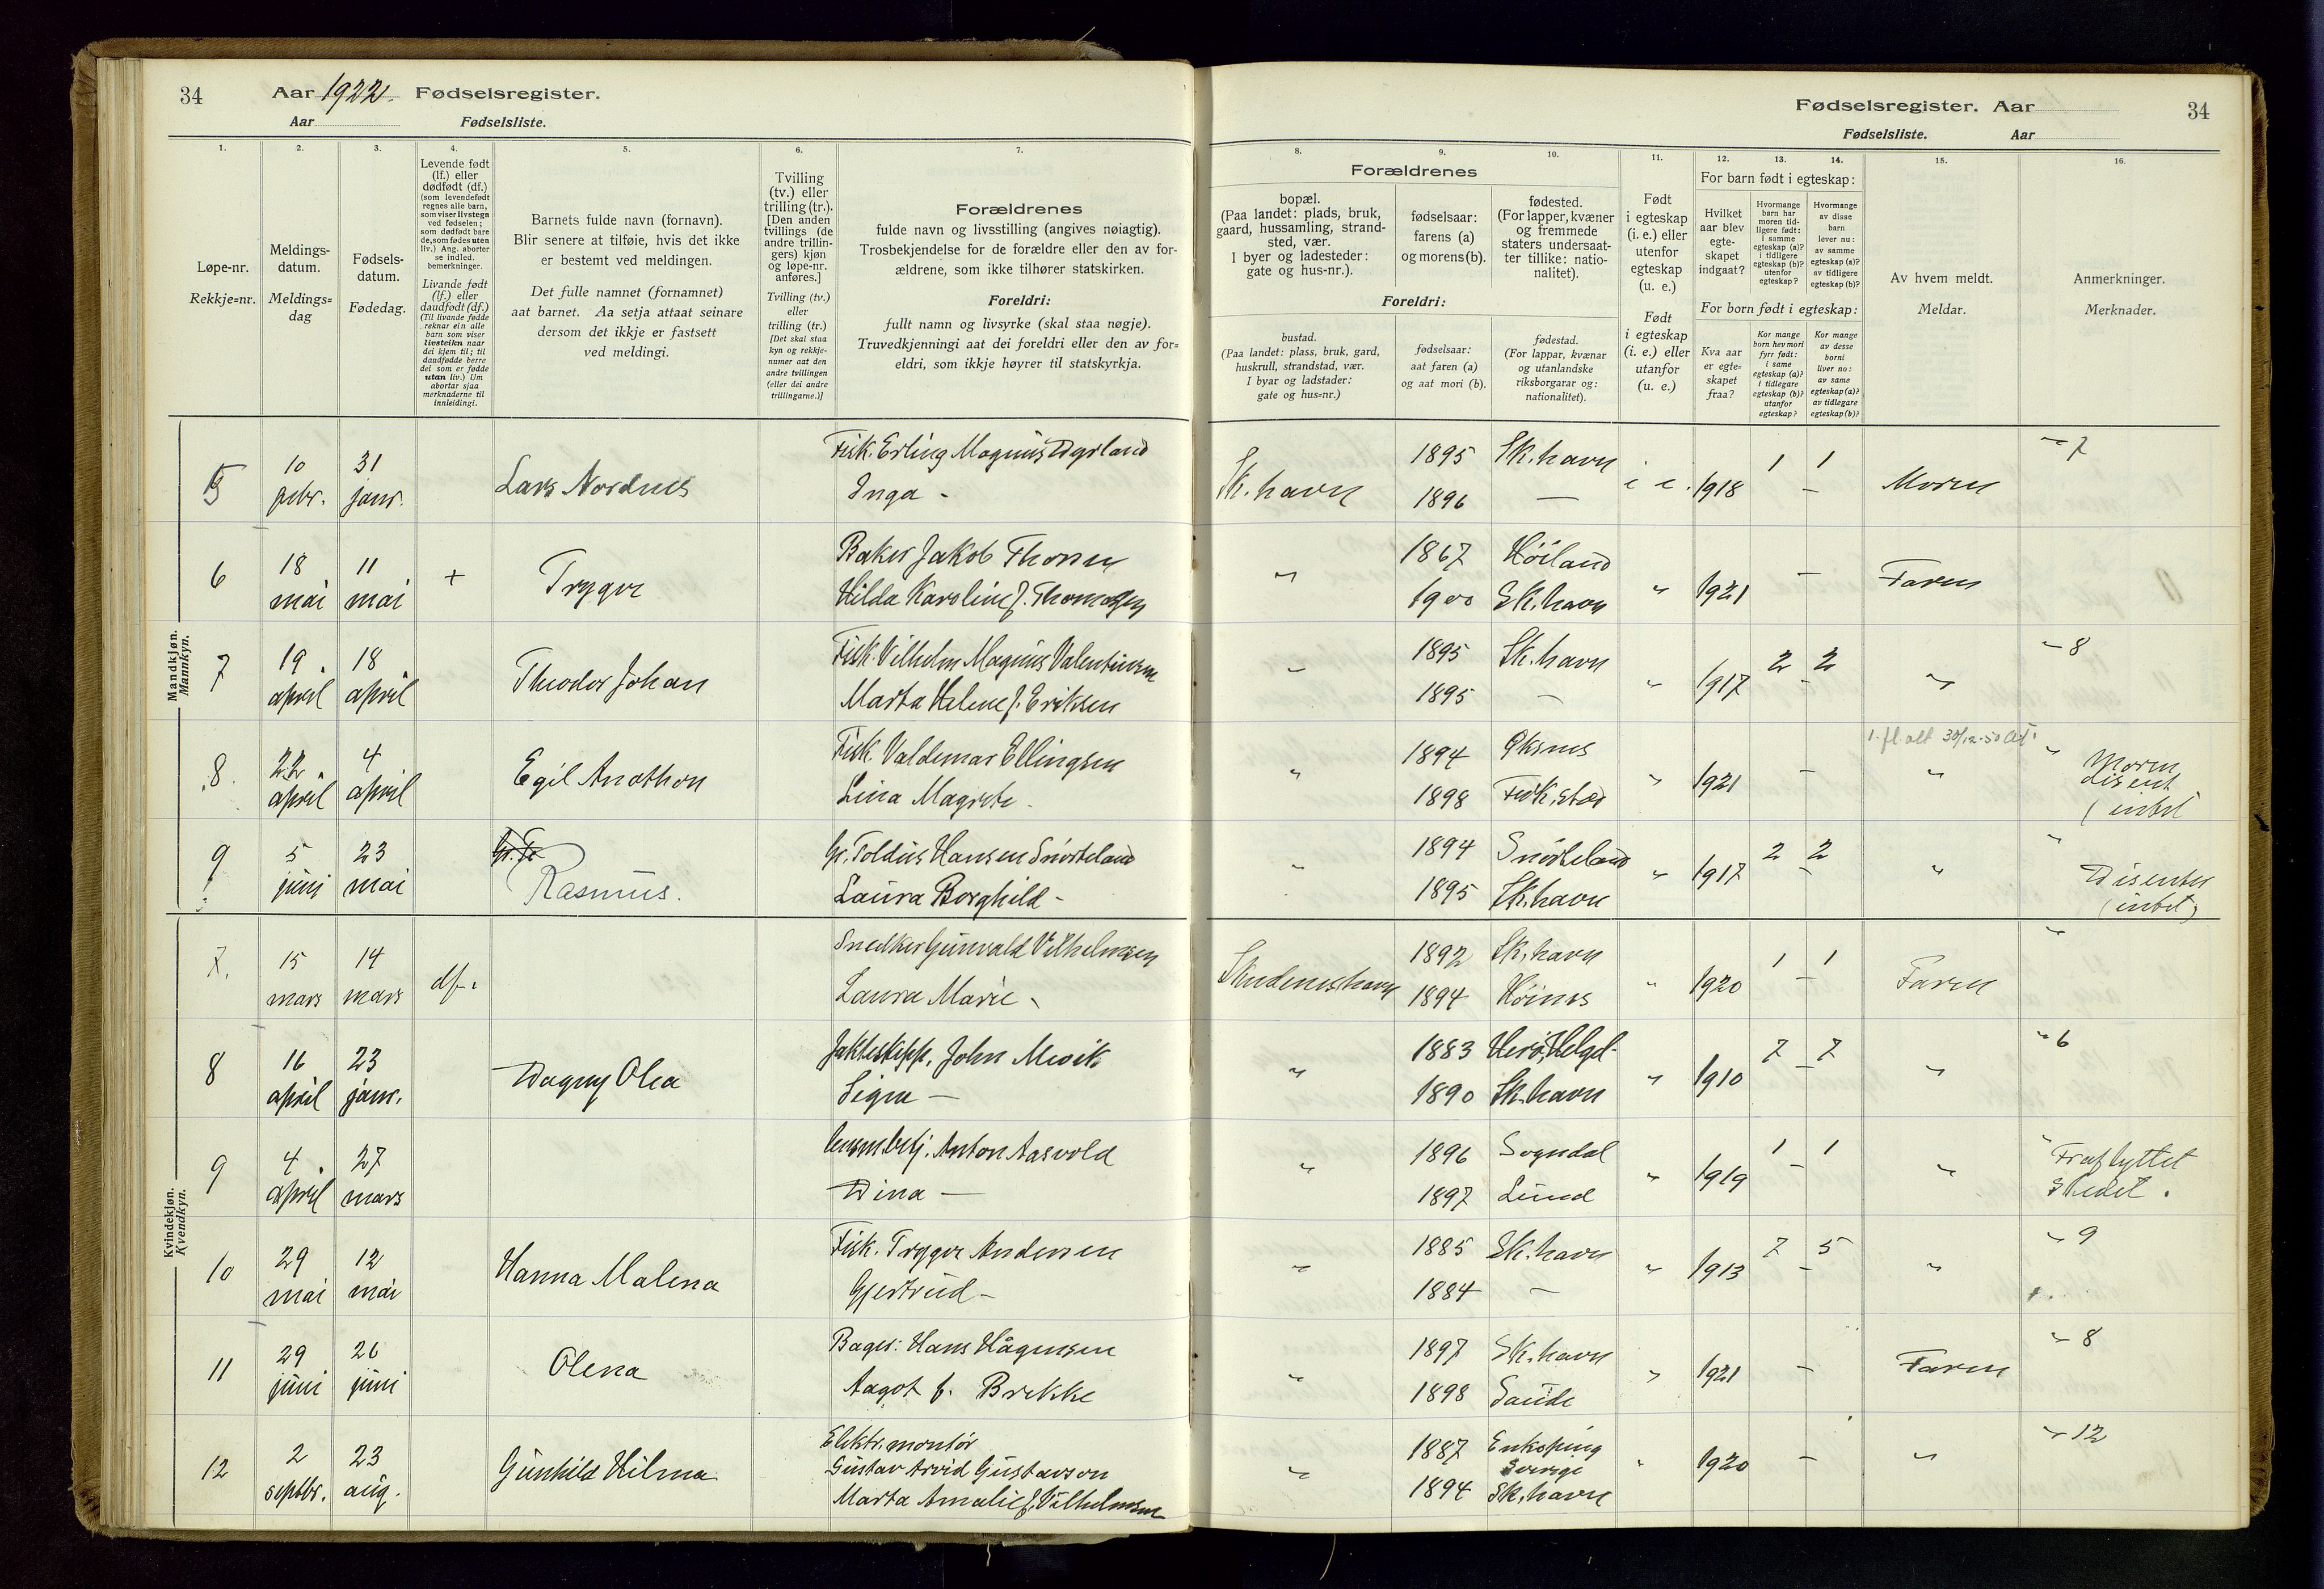 34
Aar 1922. Fødselsregister.
Aar Fødselsliste.
1.
Løpe-nr.
Rekkje=nr.
2.
Meldings-
datum.
Meldings=
dag
3.
Fødsels-
datum.
Fødedag.
4.
Levende født
(lf.) eller
dødfødt (df.)
(som levendefødt
regnes alle barn,
som viser livstegn
ved fødselen;
som dødfødt bare
de, som fødes uten
liv.) Ang. aborter
se indled.
bemerkninger.
Livande født
(lf.) eller
daudfødt (df.)
(Til livande fødde
reknar ein alle
barn som viser
livsteikn naar
dei kjem til; til
daudfødde berre
dei som er fødde
utan liv.) Um
abortar sjaa
merknaderne til
innleidingi.
5.
Barnets fulde navn (fornavn).
Blir senere at tilføie, hvis det ikke
er bestemt ved meldingen.
Det fulle namnet (fornamnet)
aat barnet. Aa setja attaat seinare
dersom det ikkje er fastsett
ved meldingi.
6.
Tvilling
(tv.) eller
trilling (tr.).
[Den anden
tvillings (de
andre trillin-
gers) kjøn
og løpe-nr.
anføres.]
Tvilling (tv.)
eller
trilling (tr.)
[Det skal staa
kyn og rekkje-
numer aat den
andre tvillingen
(eller dei andre
trillingarne.)]
7.
Forældrenes
fulde navn og livsstilling (angives nøiagtig).
Trosbekjendelse for de forældre eller den av for-
ældrene, som ikke tilhører statskirken.
Foreldri:
fullt namn og livsyrke (skal staa nøgje).
Truvedkjenningi aat dei foreldri eller den av for=
eldri, som ikkje høyrer til statskyrkja.
Mandkjøn.
Mannkyn.
5
10
febr.
31
janr.
Lars Nordnes
Fisk. Erling Magnus Dyrland
Inga -
6
18
mai
11
mai
+
Trygve
Baker Jakob Thorsen
Hilda Karoline f. Thomassen
7
19
april
18
april
Theodor Johan
Fisk. Vilhelm Magnus Valentinsen
Marta Helene f. Eriksen
8.
22
april
4
april
Egil Anathon
Fisk. Valdemar Ellingsen
Lina Magrete -
9
5
juni
23
mai
Rasmus.
Gr. Toldus Hansen Snørteland
Laura Borghild -
Kvindekjøn.
Kvendkyn.
7.
15
mars
14
mars
df.
Snedker Gunvald Vilhelmsen
Laura Marie -
8
16
april
23
janr.
Dagny Olea
Jakteskipp. John Mevik
Signe —
9
4
april
27
mars
Anton Aasvold
Dina —
10
29
mai
12
mai
Hanna Malena
Fisk. Trygve Andersen
Gjertrud -
11
29
juni
26
juni
Olena
Bager: Hans Hågensen
Aagot f. Brekke
12
2
septbr.
23
aug.
Gunhild Hilma
Elektr. montør
Gustav Arvid Gustavson
Marta Amalie f. Vilhelmsen
Fødselsregister. Aar
34
Fødselsliste. Aar
Forældrenes
8.
bopæl.
(Paa landet: plads, bruk,
gaard, hussamling, strand-
sted, vær.
I byer og ladesteder:
gate og hus-nr.).
Foreldri:
bustad.
(Paa landet: plass, bruk, gard,
huskrull, strandstad, vær.
I byar og ladstader:
gate og hus=nr.)
9.
fødselsaar:
farens (a)
og morens (b).
fødselsaar:
aat faren (a)
og aat mori (b).
10.
fødested.
(For lapper, kvæner
og fremmede
staters undersaat-
ter tillike: natio-
nalitet).
fødestad.
(For lappar, kvænar
og utanlandske
riksborgarar og:
nationalitet).
11.
Født
i egteskap
(i. e.) eller
utenfor
egteskap
(u. e.)
Født
i egteskap
(i. e.) eller
utanfor
(u. e.)
For barn født i egteskap:
12.
Hvilket
aar blev
egte-
skapet
indgaat?
For born født i egteskap:
Kva aar
er egte=
skapet
fraa?
13.
Hvormange
barn har
moren tid-
ligere født:
i samme
egteskap (a)?
i tidligere
egteskap (b)?
utenfor
egteskap?
Kor mange
born hev mori
fyrr født:
i same
egteskap (a)?
i tidlegare
egteskap (b)?
utanfor
egteskap?
14.
Hvormange
av disse
barn
lever nu:
av samme
egteskap (a)?
av tidligere
egteskap (b)?
Kor mange
av desse
borni
liver no:
av same
egteskap (a)?
av tidlegare
egteskap (b)?
15.
Av hvem meldt.
Meldar.
16.
Anmerkninger.
Merknader.
Sk. havn
1895
1896
Sk. havn
—
i e.
1918
1 1
—
Moren
" 7
"
1867
1900
Høiland
Sk. havn
"
1921
—
Faren
"
1895
1895
Sk. havn
—
"
1917
2 2
-
"
" 8
"
1894
1898
Øksnes
"
1921
—
"
"
Moren
disent
"
1894
1895
Snørteland
Sk. havn
"
1917
2 2
-
"
"
Disenter
Skudeneshavn
1892
1894
Sk. havn
Høines
"
1920
1 1
—
Faren
"
"
1883
1890
Herø, Helgel-
Sk. havn
"
1910
7 7
-
"
" 6
"
1896
1897
Sogndal
Lund
"
1919
1 1
-
"
"
Fraflyttet
stedet.
"
1885
1884
Sk. havn
—
"
1913
7 5
-
"
" 9
"
1897
1898
Sk. havn
Saude
"
1921
—
Faren
" 8
"
1887
1894
Enkøping
Sverige
Sk. havn
"
1920
—
"
" 12